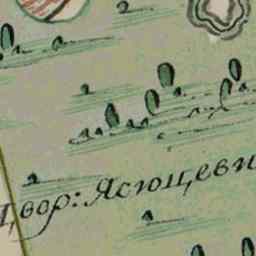 Двор: Ясюцеви